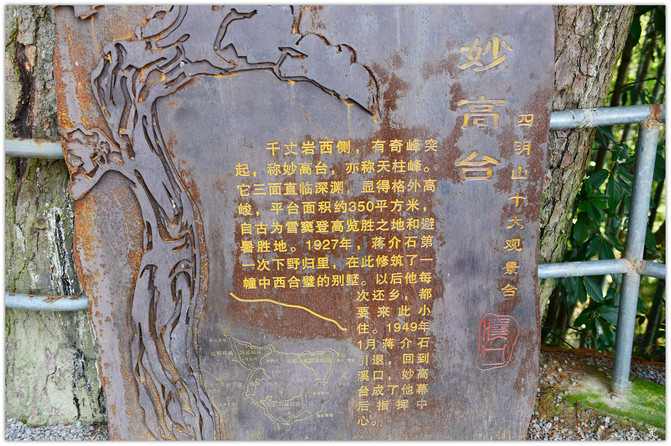 妙高台
四明山十大观景台
千丈岩西侧，有奇峰突
起，称妙高台，亦称天柱峰。
它三面直临深渊，显得格外高
峻，平台面积约350平方米，
自古为雪窦登高览胜之地和避
暑胜地。1927年，蒋介石第
一次下野归里，在此修筑了一
幢中西合璧的别墅。以后他每
次还乡，都
要来此小
住。1949年
1月蒋介石
引退，回到
溪口，妙高
台成了他幕
后指挥中
心。
溪口